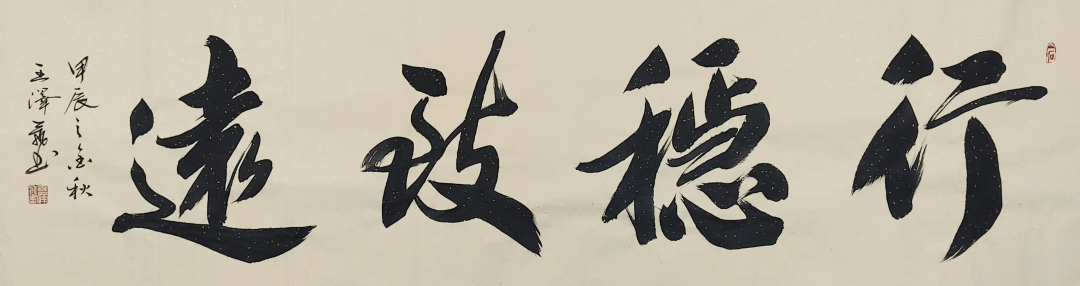 行穩致遠
甲辰之金秋
王澤義书